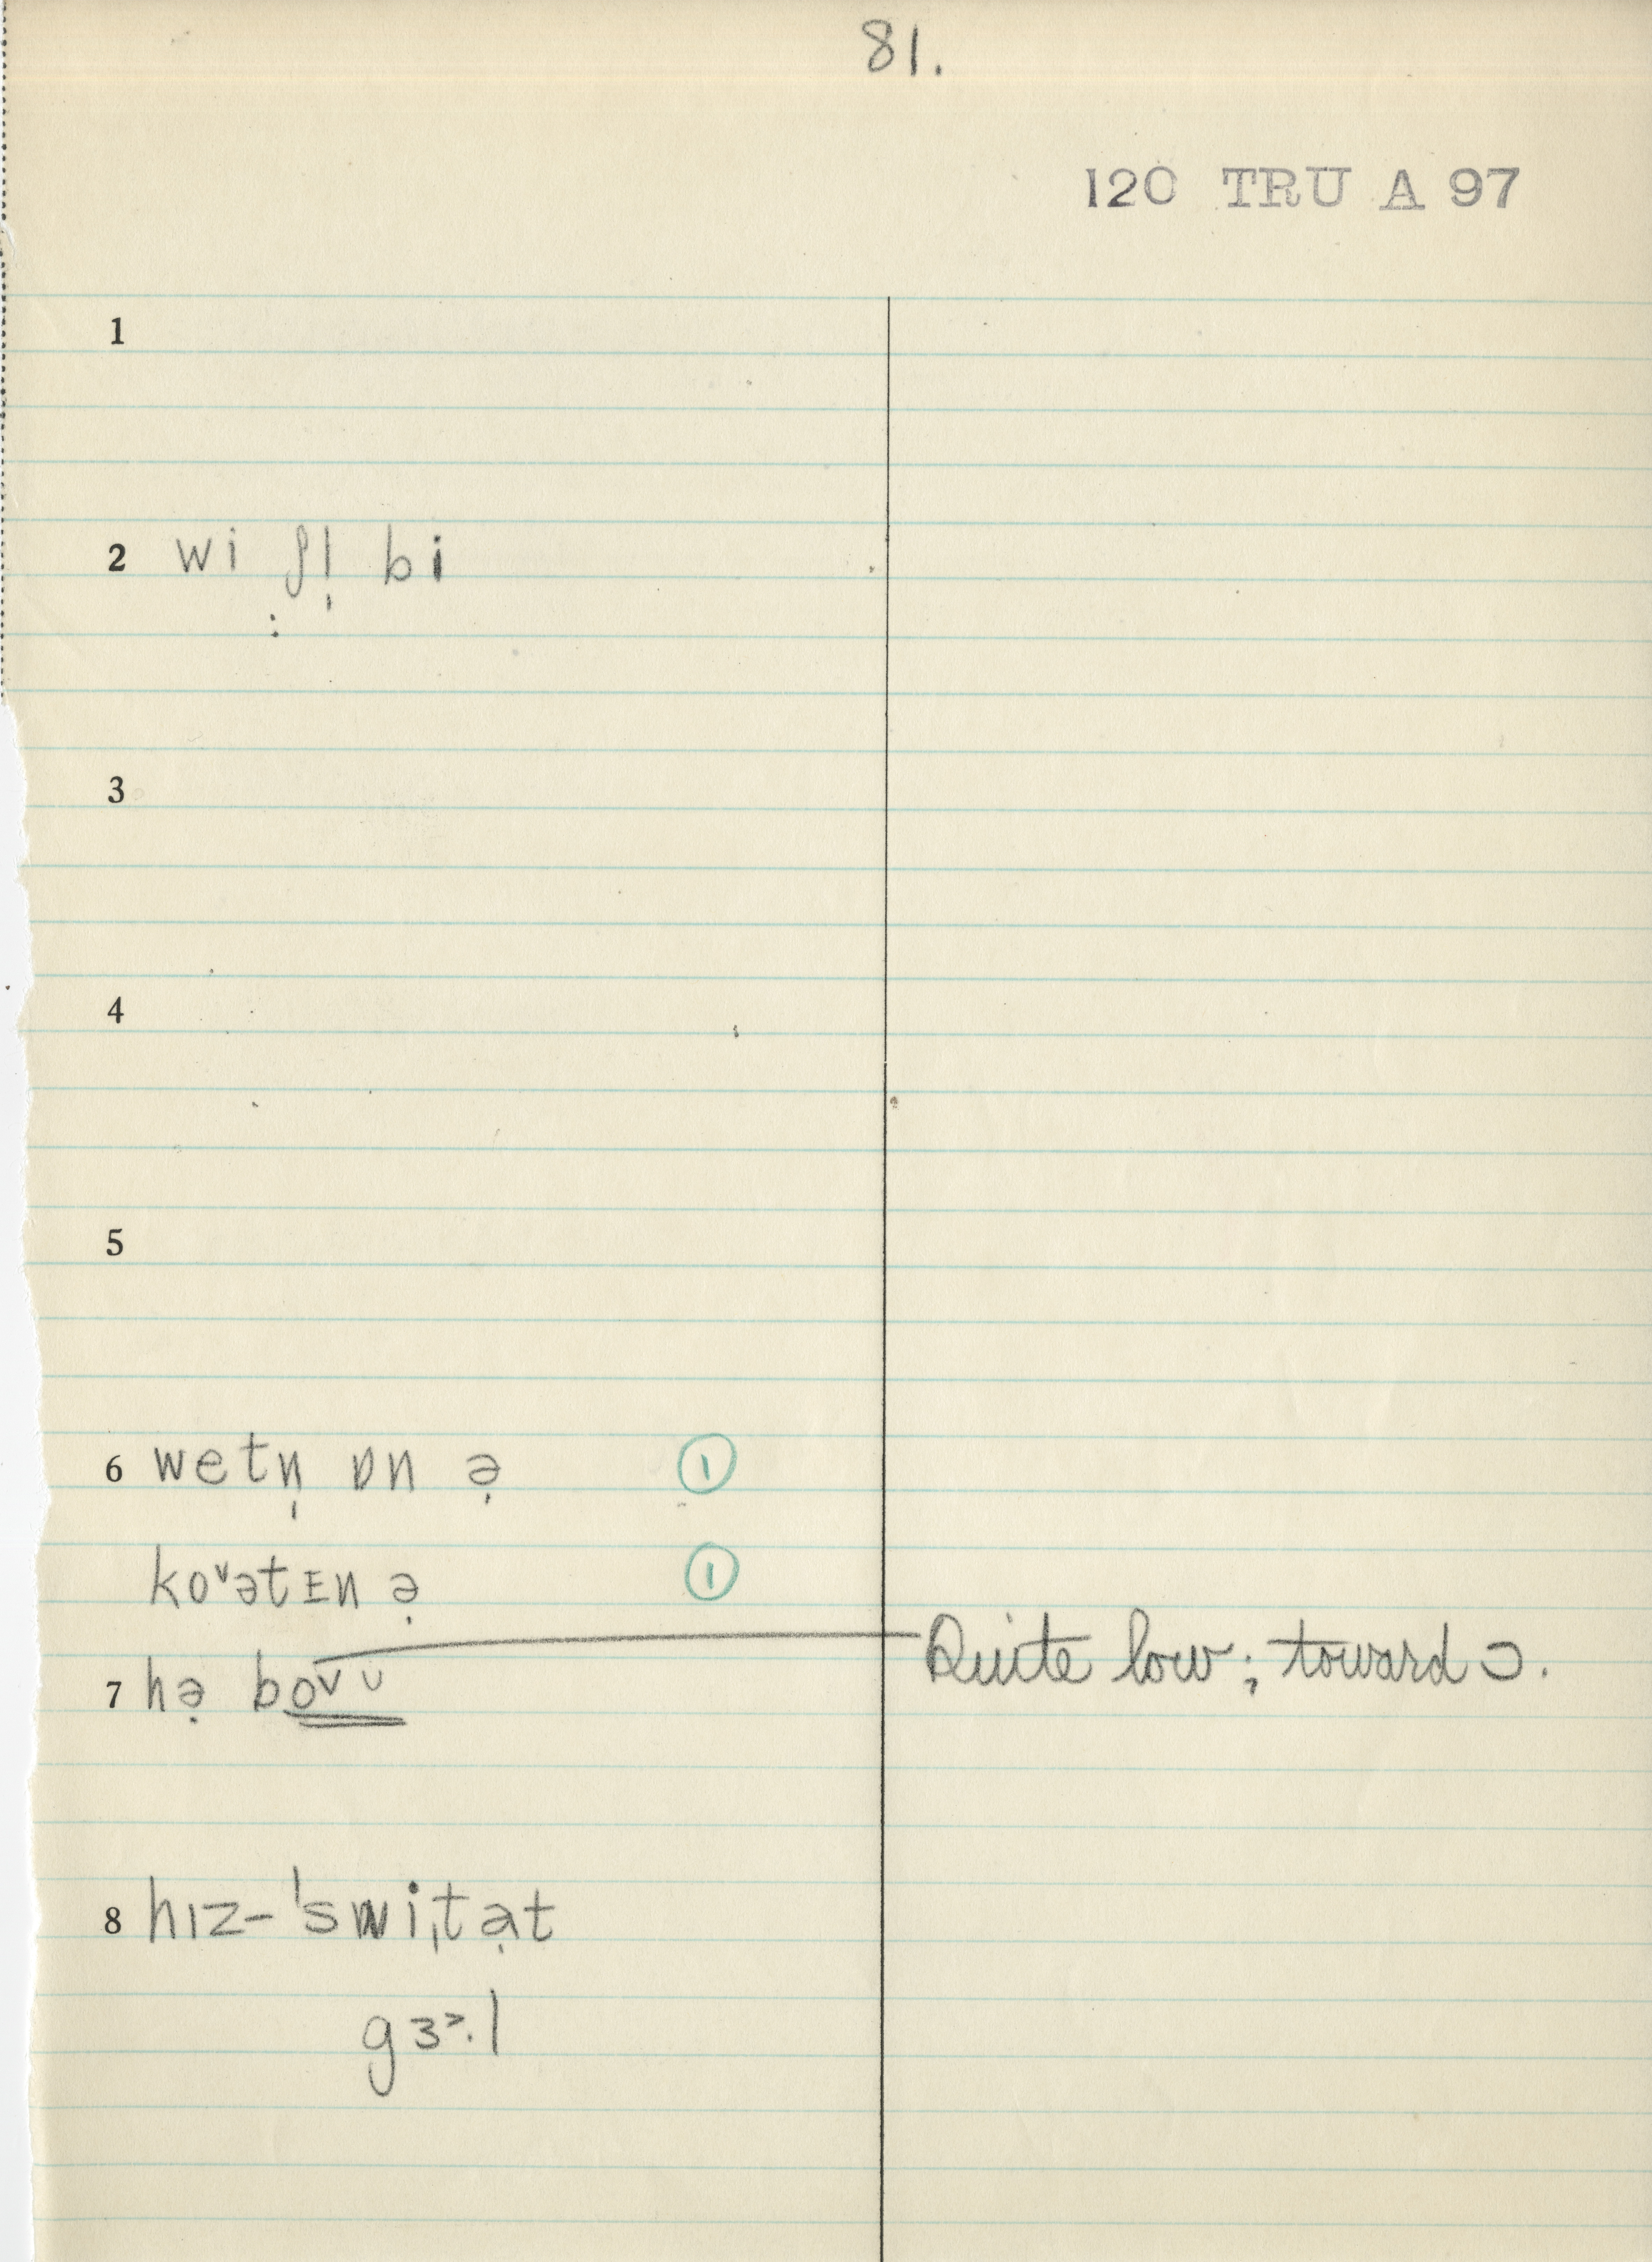 81.
120 TRU A 97
1
2 wi ʃl̩ bi
3
4
5
6 wetn̩ ɒn ə̣ ①
koᵛətɪn ə̣ ①
7 hə̣ bo̲v̲ᴜ̲ Quite low; toward ɔ.
8 hɪz-ˈswiˌtə̣t
gɜ˃·l